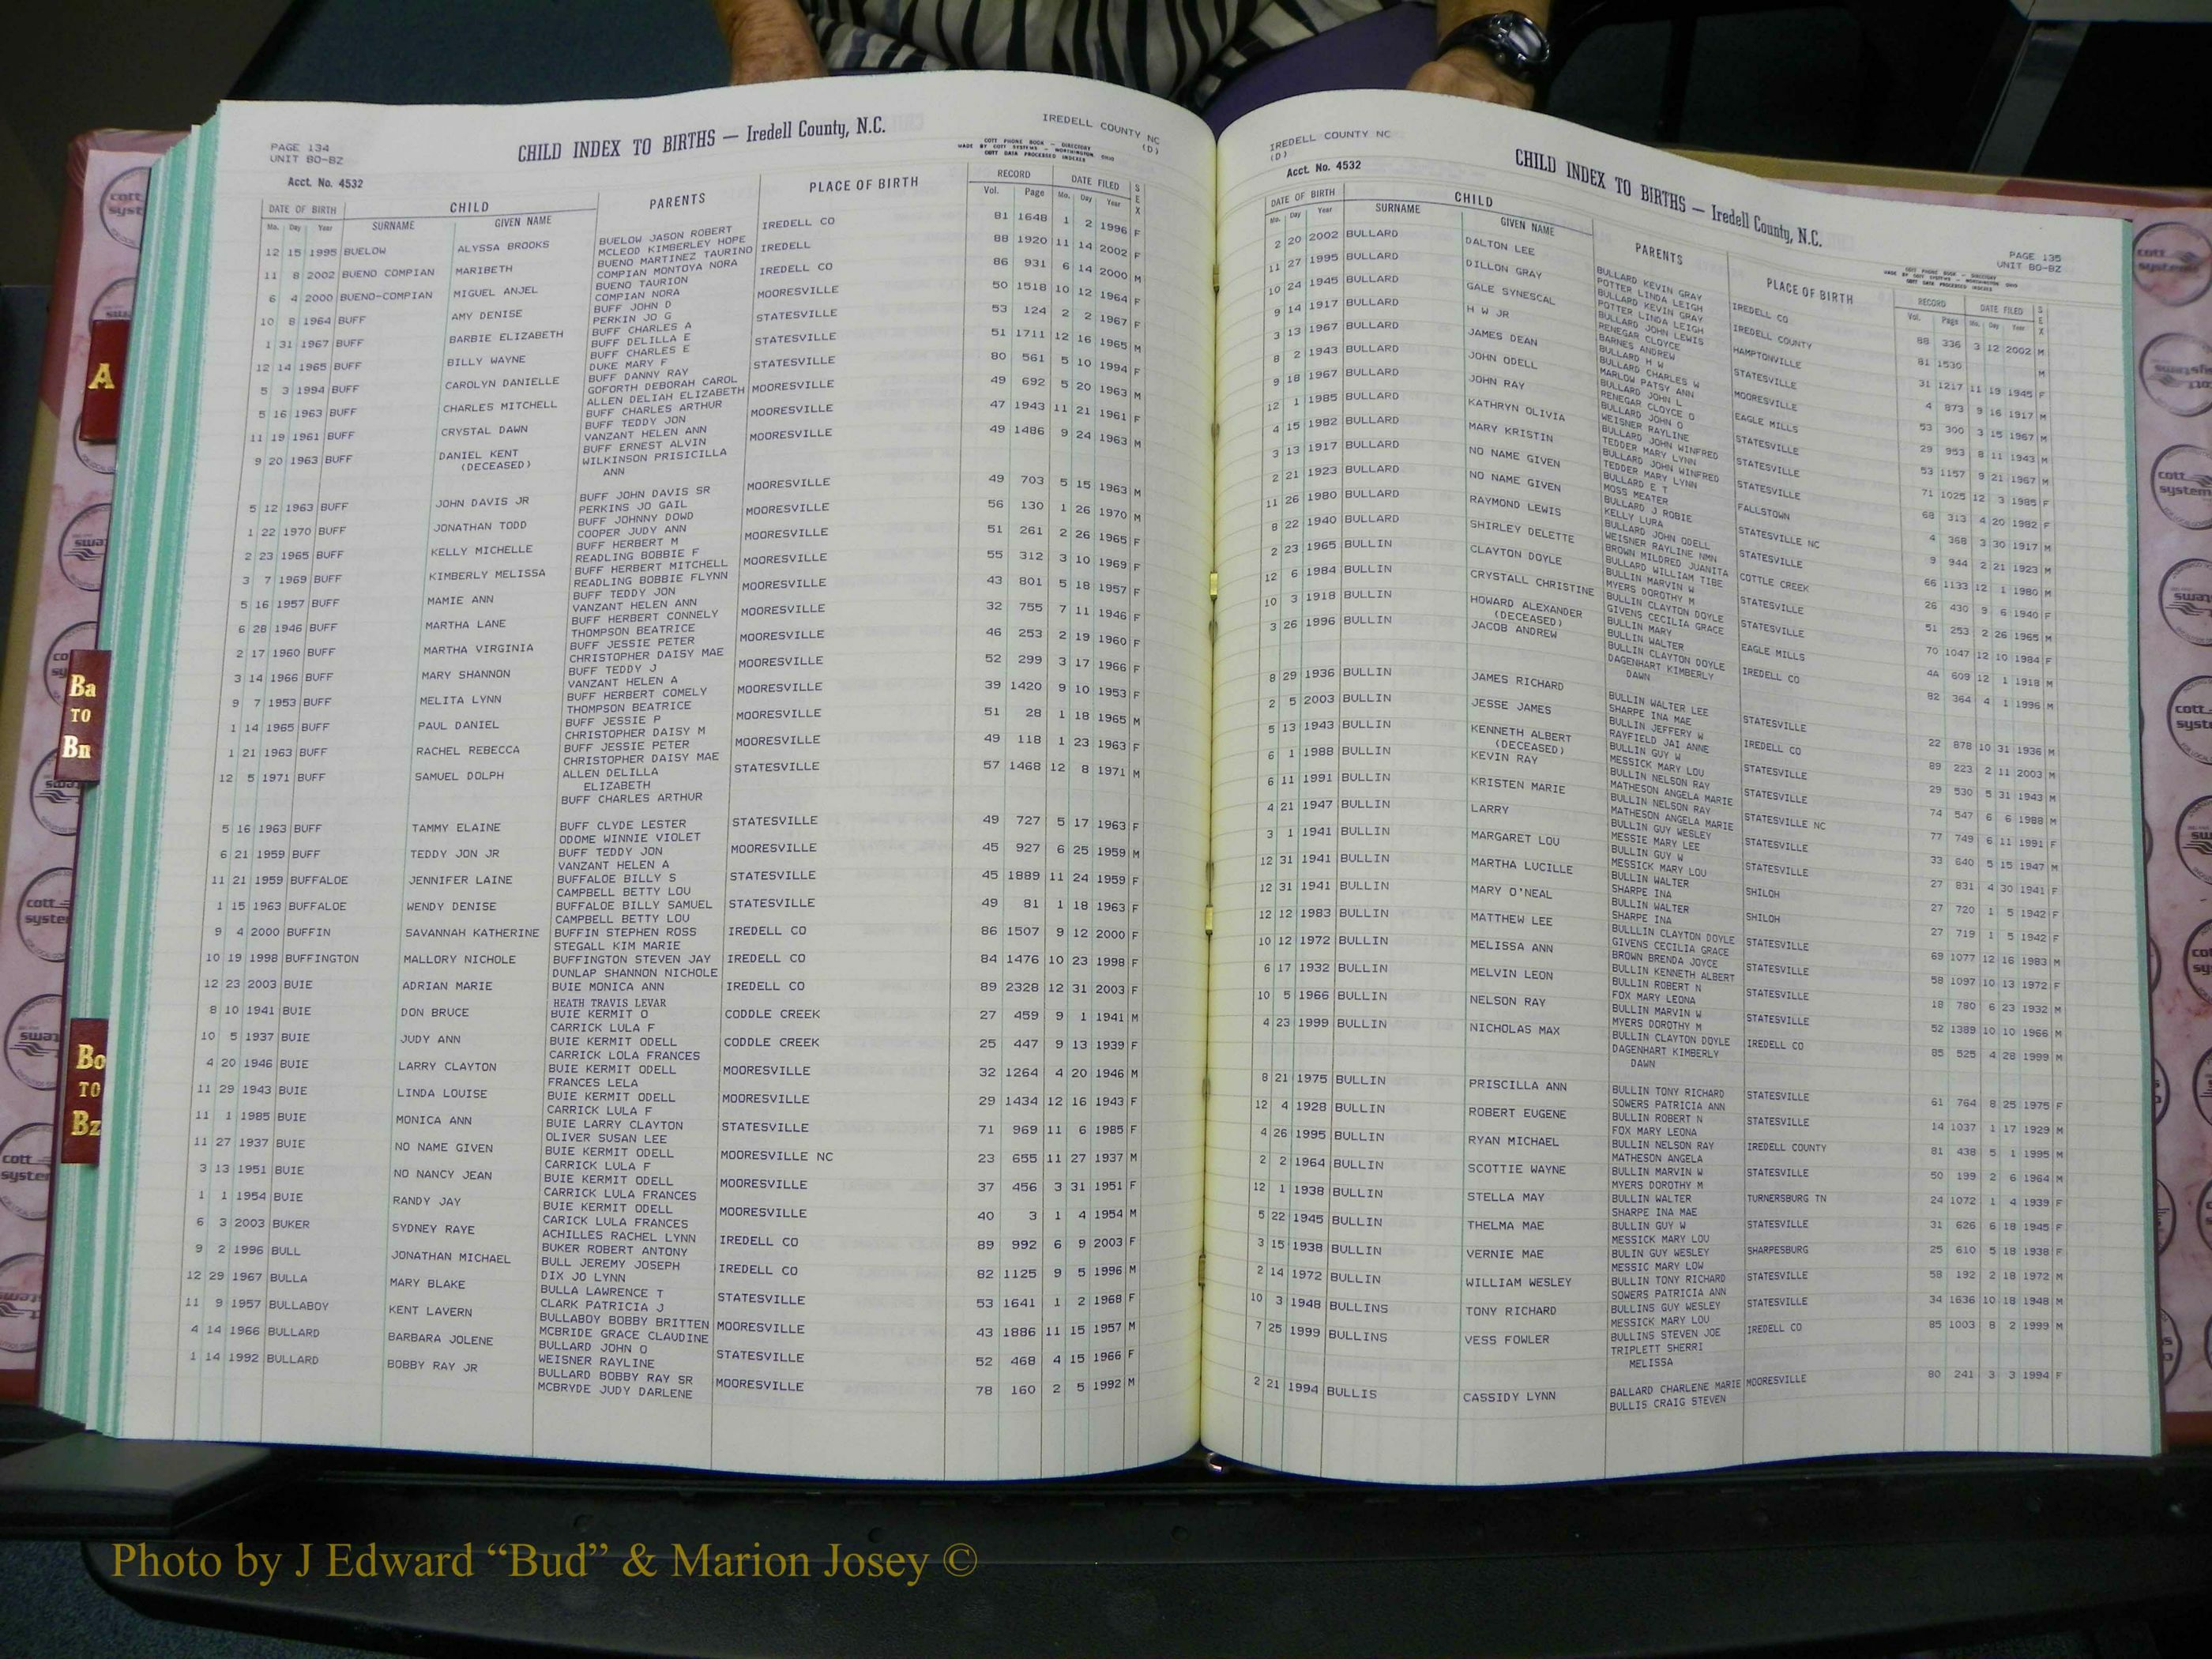 PAGE 134
UNIT BO-BZ
CHILD INDEX TO BIRTHS — Iredell County, N.C.
IREDELL COUNTY NC
(D)
COTT PHONE BOOK - DIRECTORY
MADE BY COTT SYSTEMS - WORTHINGTON OHIO
COTT DATA PROCESSED INDEXES
Acct. No. 4532
DATE OF BIRTH CHILD PARENTS PLACE OF BIRTH RECORD DATE FILED SEX
Mo. Day Year SURNAME GIVEN NAME Vol. Page Mo. Day Year
12 15 1995 BUELOW ALYSSA BROOKS BUELOW JASON ROBERT IREDELL CO 81 1648 1 2 1996 F
MCLEOD KIMBERLEY HOPE
11 8 2002 BUENO COMPIAN MARIBETH BUENO MARTINEZ TAURINO IREDELL 88 1920 11 14 2002 F
COMPIAN MONTOYA NORA
6 4 2000 BUENO-COMPIAN MIGUEL ANJEL BUENO TAURION IREDELL CO 86 931 6 14 2000 M
COMPIAN NORA
10 8 1964 BUFF AMY DENISE BUFF JOHN D MOORESVILLE 50 1518 10 12 1964 F
PERKIN JO G
1 31 1967 BUFF BARBIE ELIZABETH BUFF CHARLES A STATESVILLE 53 124 2 2 1967 F
BUFF DELILLA E
12 14 1965 BUFF BILLY WAYNE BUFF CHARLES E STATESVILLE 51 1711 12 16 1965 M
DUKE MARY F
5 3 1994 BUFF CAROLYN DANIELLE BUFF DANNY RAY STATESVILLE 80 561 5 10 1994 F
GOFORTH DEBORAH CAROL
5 16 1963 BUFF CHARLES MITCHELL ALLEN DELIAH ELIZABETH MOORESVILLE 49 692 5 20 1963 M
BUFF CHARLES ARTHUR
11 19 1961 BUFF CRYSTAL DAWN BUFF TEDDY JON MOORESVILLE 47 1943 11 21 1961 F
VANZANT HELEN ANN
9 20 1963 BUFF DANIEL KENT BUFF ERNEST ALVIN MOORESVILLE 49 1486 9 24 1963 M
(DECEASED) WILKINSON PRISICILLA
ANN
5 12 1963 BUFF JOHN DAVIS JR BUFF JOHN DAVIS SR MOORESVILLE 49 703 5 15 1963 M
PERKINS JO GAIL
1 22 1970 BUFF JONATHAN TODD BUFF JOHNNY DOWD MOORESVILLE 56 130 1 26 1970 M
COOPER JUDY ANN
2 23 1965 BUFF KELLY MICHELLE BUFF HERBERT M MOORESVILLE 51 261 2 26 1965 F
READLING BOBBIE F
3 7 1969 BUFF KIMBERLY MELISSA BUFF HERBERT MITCHELL MOORESVILLE 55 312 3 10 1969 F
READLING BOBBIE FLYNN
5 16 1957 BUFF MAMIE ANN BUFF TEDDY JON MOORESVILLE 43 801 5 18 1957 F
VANZANT HELEN ANN
6 28 1946 BUFF MARTHA LANE BUFF HERBERT CONNELY MOORESVILLE 32 755 7 11 1946 F
THOMPSON BEATRICE
2 17 1960 BUFF MARTHA VIRGINIA BUFF JESSIE PETER MOORESVILLE 46 253 2 19 1960 F
CHRISTOPHER DAISY MAE
3 14 1966 BUFF MARY SHANNON BUFF TEDDY J MOORESVILLE 52 299 3 17 1966 F
VANZANT HELEN A
9 7 1953 BUFF MELITA LYNN BUFF HERBERT COMELY MOORESVILLE 39 1420 9 10 1953 F
THOMPSON BEATRICE
1 14 1965 BUFF PAUL DANIEL BUFF JESSIE P MOORESVILLE 51 28 1 18 1965 M
CHRISTOPHER DAISY M
1 21 1963 BUFF RACHEL REBECCA BUFF JESSIE PETER MOORESVILLE 49 118 1 23 1963 F
CHRISTOPHER DAISY MAE
12 5 1971 BUFF SAMUEL DOLPH ALLEN DELILLA STATESVILLE 57 1468 12 8 1971 M
ELIZABETH
BUFF CHARLES ARTHUR
5 16 1963 BUFF TAMMY ELAINE BUFF CLYDE LESTER STATESVILLE 49 727 5 17 1963 F
ODOME WINNIE VIOLET
6 21 1959 BUFF TEDDY JON JR BUFF TEDDY JON MOORESVILLE 45 927 6 25 1959 M
VANZANT HELEN A
11 21 1959 BUFFALOE JENNIFER LAINE BUFFALOE BILLY S STATESVILLE 45 1889 11 24 1959 F
CAMPBELL BETTY LOU
1 15 1963 BUFFALOE WENDY DENISE BUFFALOE BILLY SAMUEL STATESVILLE 49 81 1 18 1963 F
CAMPBELL BETTY LOU
9 4 2000 BUFFIN SAVANNAH KATHERINE BUFFIN STEPHEN ROSS IREDELL CO 86 1507 9 12 2000 F
STEGALL KIM MARIE
10 19 1998 BUFFINGTON MALLORY NICHOLE BUFFINGTON STEVEN JAY IREDELL CO 84 1476 10 23 1998 F
DUNLAP SHANNON NICHOLE
12 23 2003 BUIE ADRIAN MARIE BUIE MONICA ANN IREDELL CO 89 2328 12 31 2003 F
HEATH TRAVIS LEVAR
8 10 1941 BUIE DON BRUCE BUIE KERMIT O CODDLE CREEK 27 459 9 1 1941 M
CARRICK LULA F
10 5 1937 BUIE JUDY ANN BUIE KERMIT ODELL CODDLE CREEK 25 447 9 13 1939 F
CARRICK LOLA FRANCES
4 20 1946 BUIE LARRY CLAYTON BUIE KERMIT ODELL MOORESVILLE 32 1264 4 20 1946 M
FRANCES LELA
11 29 1943 BUIE LINDA LOUISE BUIE KERMIT ODELL MOORESVILLE 29 1434 12 16 1943 F
CARRICK LULA F
11 1 1985 BUIE MONICA ANN BUIE LARRY CLAYTON STATESVILLE 71 969 11 6 1985 F
OLIVER SUSAN LEE
11 27 1937 BUIE NO NAME GIVEN BUIE KERMIT ODELL MOORESVILLE NC 23 655 11 27 1937 M
CARRICK LULA F
3 13 1951 BUIE NO NANCY JEAN BUIE KERMIT ODELL MOORESVILLE 37 456 3 31 1951 F
CARRICK LULA FRANCES
1 1 1954 BUIE RANDY JAY BUIE KERMIT ODELL MOORESVILLE 40 3 1 4 1954 M
CARICK LULA FRANCES
6 3 2003 BUKER SYDNEY RAYE ACHILLES RACHEL LYNN IREDELL CO 89 992 6 9 2003 F
BUKER ROBERT ANTONY
9 2 1996 BULL JONATHAN MICHAEL BULL JEREMY JOSEPH IREDELL CO 82 1125 9 5 1996 M
DIX JO LYNN
12 29 1967 BULLA MARY BLAKE BULLA LAWRENCE T STATESVILLE 53 1641 1 2 1968 F
CLARK PATRICIA J
11 9 1957 BULLABOY KENT LAVERN BULLABOY BOBBY BRITTEN MOORESVILLE 43 1886 11 15 1957 M
MCBRIDE GRACE CLAUDINE
4 14 1966 BULLARD BARBARA JOLENE BULLARD JOHN O STATESVILLE 52 468 4 15 1966 F
WEISNER RAYLINE
1 14 1992 BULLARD BOBBY RAY JR BULLARD BOBBY RAY SR MOORESVILLE 78 160 2 5 1992 M
MCBRYDE JUDY DARLENE
IREDELL COUNTY NC
(D)
CHILD INDEX TO BIRTHS — Iredell County, N.C.
PAGE 135
UNIT BO-BZ
Acct. No. 4532
COTT PHONE BOOK - DIRECTORY
MADE BY COTT SYSTEMS - WORTHINGTON OHIO
COTT DATA PROCESSED INDEXES
DATE OF BIRTH CHILD PARENTS PLACE OF BIRTH RECORD DATE FILED SEX
Mo. Day Year SURNAME GIVEN NAME Vol. Page Mo. Day Year
2 20 2002 BULLARD DALTON LEE BULLARD KEVIN GRAY IREDELL CO 88 336 3 12 2002 M
POTTER LINDA LEIGH
11 27 1995 BULLARD DILLON GRAY BULLARD KEVIN GRAY IREDELL COUNTY 81 1530 M
POTTER LINDA LEIGH
10 24 1945 BULLARD GALE SYNESCAL BULLARD JOHN LEWIS HAMPTONVILLE 31 1217 11 19 1945 F
RENEGAR CLOYCE
9 14 1917 BULLARD H W JR BARNES ANDREW STATESVILLE 4 873 9 16 1917 M
BULLARD H W
3 13 1967 BULLARD JAMES DEAN BULLARD CHARLES W MOORESVILLE 53 300 3 15 1967 M
MARLOW PATSY ANN
8 2 1943 BULLARD JOHN ODELL BULLARD JOHN L EAGLE MILLS 29 953 8 11 1943 M
RENEGAR CLOYCE O
9 18 1967 BULLARD JOHN RAY BULLARD JOHN O STATESVILLE 53 1157 9 21 1967 M
WEISNER RAYLINE
12 1 1985 BULLARD KATHRYN OLIVIA BULLARD JOHN WINFRED STATESVILLE 71 1025 12 3 1985 F
TEDDER MARY LYNN
4 15 1982 BULLARD MARY KRISTIN BULLARD JOHN WINFRED STATESVILLE 68 313 4 20 1982 F
TEDDER MARY LYNN
3 13 1917 BULLARD NO NAME GIVEN BULLARD E T FALLSTOWN 4 368 3 30 1917 M
MOSS MEATER
2 21 1923 BULLARD NO NAME GIVEN BULLARD J ROBIE STATESVILLE NC 9 944 2 21 1923 M
KELLY LURA
11 26 1980 BULLARD RAYMOND LEWIS BULLARD JOHN ODELL STATESVILLE 66 1133 12 1 1980 M
WEISNER RAYLINE NMN
8 22 1940 BULLARD SHIRLEY DELETTE BROWN MILDRED JUANITA COTTLE CREEK 26 430 9 6 1940 F
BULLARD WILLIAM TIBE
2 23 1965 BULLIN CLAYTON DOYLE BULLIN MARVIN W STATESVILLE 51 253 2 26 1965 M
MYERS DOROTHY M
12 6 1984 BULLIN CRYSTALL CHRISTINE BULLIN CLAYTON DOYLE STATESVILLE 70 1047 12 10 1984 F
GIVENS CECILIA GRACE
10 3 1918 BULLIN HOWARD ALEXANDER BULLIN MARY EAGLE MILLS 4A 609 12 1 1918 M
(DECEASED) BULLIN WALTER
3 26 1996 BULLIN JACOB ANDREW BULLIN CLAYTON DOYLE IREDELL CO 82 364 4 1 1996 M
DAGENHART KIMBERLY
DAWN
8 29 1936 BULLIN JAMES RICHARD BULLIN WALTER LEE STATESVILLE 22 878 10 31 1936 M
SHARPE INA MAE
2 5 2003 BULLIN JESSE JAMES BULLIN JEFFERY W IREDELL CO 89 223 2 11 2003 M
RAYFIELD JAI ANNE
5 13 1943 BULLIN KENNETH ALBERT BULLIN GUY W STATESVILLE 29 530 5 31 1943 M
(DECEASED) MESSICK MARY LOU
6 1 1988 BULLIN KEVIN RAY BULLIN NELSON RAY STATESVILLE 74 547 6 6 1988 M
MATHESON ANGELA MARIE
6 11 1991 BULLIN KRISTEN MARIE BULLIN NELSON RAY STATESVILLE NC 77 749 6 11 1991 F
MATHESON ANGELA MARIE
4 21 1947 BULLIN LARRY BULLIN GUY WESLEY STATESVILLE 33 640 5 15 1947 M
MESSIE MARY LEE
3 1 1941 BULLIN MARGARET LOU BULLIN GUY W STATESVILLE 27 831 4 30 1941 F
MESSICK MARY LOU
12 31 1941 BULLIN MARTHA LUCILLE BULLIN WALTER SHILOH 27 720 1 5 1942 F
SHARPE INA
12 31 1941 BULLIN MARY O'NEAL BULLIN WALTER SHILOH 27 719 1 5 1942 F
SHARPE INA
12 12 1983 BULLIN MATTHEW LEE BULLLIN CLAYTON DOYLE STATESVILLE 69 1077 12 16 1983 M
GIVENS CECILIA GRACE
10 12 1972 BULLIN MELISSA ANN BROWN BRENDA JOYCE STATESVILLE 58 1097 10 13 1972 F
BULLIN KENNETH ALBERT
6 17 1932 BULLIN MELVIN LEON BULLIN ROBERT N STATESVILLE 18 780 6 23 1932 M
FOX MARY LEONA
10 5 1966 BULLIN NELSON RAY BULLIN MARVIN W STATESVILLE 52 1389 10 10 1966 M
MYERS DOROTHY M
4 23 1999 BULLIN NICHOLAS MAX BULLIN CLAYTON DOYLE IREDELL CO 85 525 4 28 1999 M
DAGENHART KIMBERLY
DAWN
8 21 1975 BULLIN PRISCILLA ANN BULLIN TONY RICHARD STATESVILLE 61 764 8 25 1975 F
SOWERS PATRICIA ANN
12 4 1928 BULLIN ROBERT EUGENE BULLIN ROBERT N STATESVILLE 14 1037 1 17 1929 M
FOX MARY LEONA
4 26 1995 BULLIN RYAN MICHAEL BULLIN NELSON RAY IREDELL COUNTY 81 438 5 1 1995 M
MATHESON ANGELA
2 2 1964 BULLIN SCOTTIE WAYNE BULLIN MARVIN W STATESVILLE 50 199 2 6 1964 M
MYERS DOROTHY M
12 1 1938 BULLIN STELLA MAY BULLIN WALTER TURNERSBURG TN 24 1072 1 4 1939 F
SHARPE INA MAE
5 22 1945 BULLIN THELMA MAE BULLIN GUY W STATESVILLE 31 626 6 18 1945 F
MESSICK MARY LOU
3 15 1938 BULLIN VERNIE MAE BULIN GUY WESLEY SHARPESBURG 25 610 5 18 1938 F
MESSIC MARY LOW
2 14 1972 BULLIN WILLIAM WESLEY BULLIN TONY RICHARD STATESVILLE 58 192 2 18 1972 M
SOWERS PATRICIA ANN
10 3 1948 BULLINS TONY RICHARD BULLINS GUY WESLEY STATESVILLE 34 1636 10 18 1948 M
MESSICK MARY LOU
7 25 1999 BULLINS VESS FOWLER BULLINS STEVEN JOE IREDELL CO 85 1003 8 2 1999 M
TRIPLETT SHERRI
MELISSA
2 21 1994 BULLIS CASSIDY LYNN BALLARD CHARLENE MARIE MOORESVILLE 80 241 3 3 1994 F
BULLIS CRAIG STEVEN
A
Ba
TO
Bn
Bo
TO
Bz
cott
systems
Photo by J Edward “Bud” & Marion Josey ©